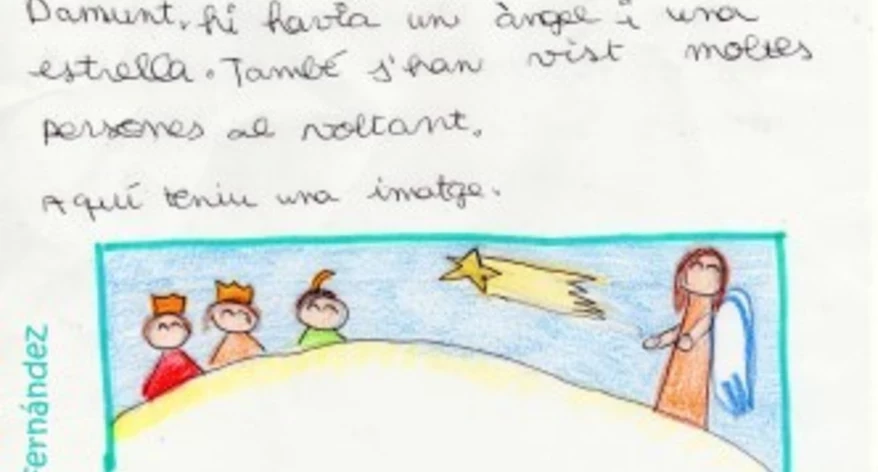 Damunt, hi havia un àngel i una
estrella. També s'han vist moltes
persones al voltant.
Aquí teniu una imatge.
Fernández